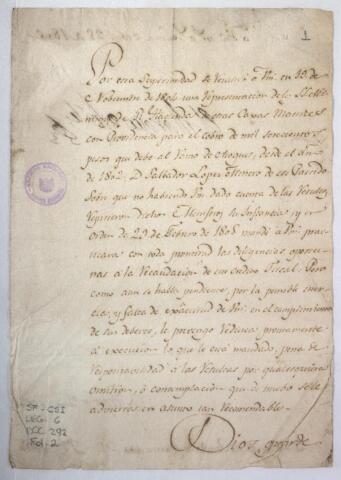 1
Por esta Superioridad se remitió a Vm. en 19 de
Noviembre de 1806 una representacion de los SS. Mi-
nistros de Rl. Hacienda de estas Caxas Matrices
con Providencia para el cobro de mil seiscientos
pesos que debe al Ramo de Azogues, desde el año
de 1802, Dn. Salvador Lopez Minero de ese Partido
sobre que no habiendo Vm. dado cuenta de las resultas
repitieron dichos SS. Ministros su instancia y en
orden de 29 de Febrero de 1808 mandé a Vm. prac-
ticara con toda prontitud las diligencias oportu-
nas á la recaudacion de ese credito Fiscal. Pero
como aun se halla pendiente, por la punible iner-
cia, y falta de exâctitud de Vm. en el cumplimiento
de sus deberes, le prevengo reduzca prontamente
á execucion lo que le está mandado, pena de
responsavilidad á las resultas por qualesquiera
omision, ó contemplacion que de nuebo se le
advierta en asunto tan recomendable.
Dios guarde
ST-CSI
LEG-6
DOC. 292
Fol-2